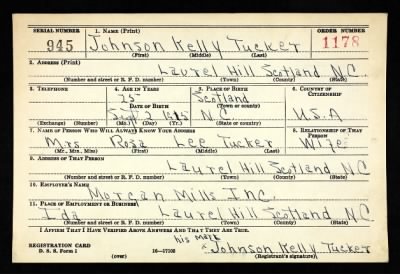 SERIAL NUMBER 1. NAME (Print) ORDER NUMBER
945 Johnson Kelly Tucker 1178
(First) (Middle) (Last)
2. ADDRESS (Print)
Laurel Hill Scotland N.C.
(Number and street or R. F. D. number) (Town) (County) (State)
3. TELEPHONE 4. AGE IN YEARS 5. PLACE OF BIRTH 6. COUNTRY OF CITIZENSHIP
25 Scotland
DATE OF BIRTH (Town or county)
1915 N.C. U.S.A
(Exchange) (Number) (Mo.) (Day) (Yr.) (State or country)
7. NAME OF PERSON WHO WILL ALWAYS KNOW YOUR ADDRESS 8. RELATIONSHIP OF THAT PERSON
Mrs Rosa Lee Tucker Wife
(Mr., Mrs., Miss) (First) (Middle) (Last)
9. ADDRESS OF THAT PERSON
Laurel Hill Scotland NC
(Number and street or R. F. D. number) (Town) (County) (State)
10. EMPLOYER'S NAME
Morgan Mills Inc
11. PLACE OF EMPLOYMENT OR BUSINESS
Ida Laurel Hill Scotland NC
(Number and street or R. F. D. number) (Town) (County) (State)
I AFFIRM THAT I HAVE VERIFIED ABOVE ANSWERS AND THAT THEY ARE TRUE.
his mark
REGISTRATION CARD x Johnson Kelly Tucker
D. S. S. Form 1 16—17105 (Registrant's signature)
(over)